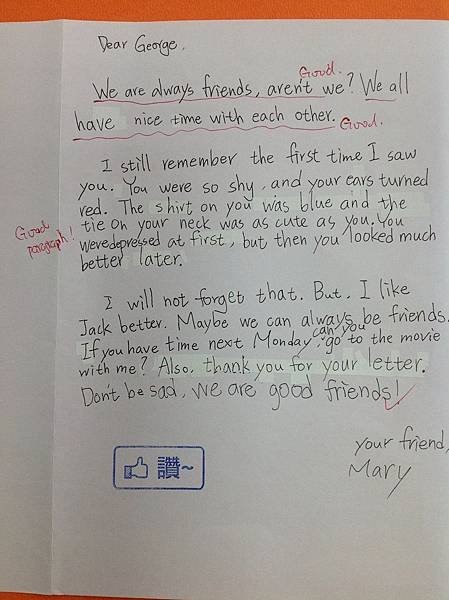 Dear George,
Good.
We are always friends, aren't we? We all
have nice time with each other. Good.
I still remember the first time I saw
you. You were so shy, and your ears turned
red. The shirt on you was blue and the
tie on your neck was as cute as you. You
Good
paragraph!
were depressed at first, but then you looked much
better later.
I will not forget that. But, I like
Jack better. Maybe we can always be friends.
can you
If you have time next Monday, go to the movie
with me? Also, thank you for your letter.
Don't be sad, we are good friends!
your friend,
Mary
讚~